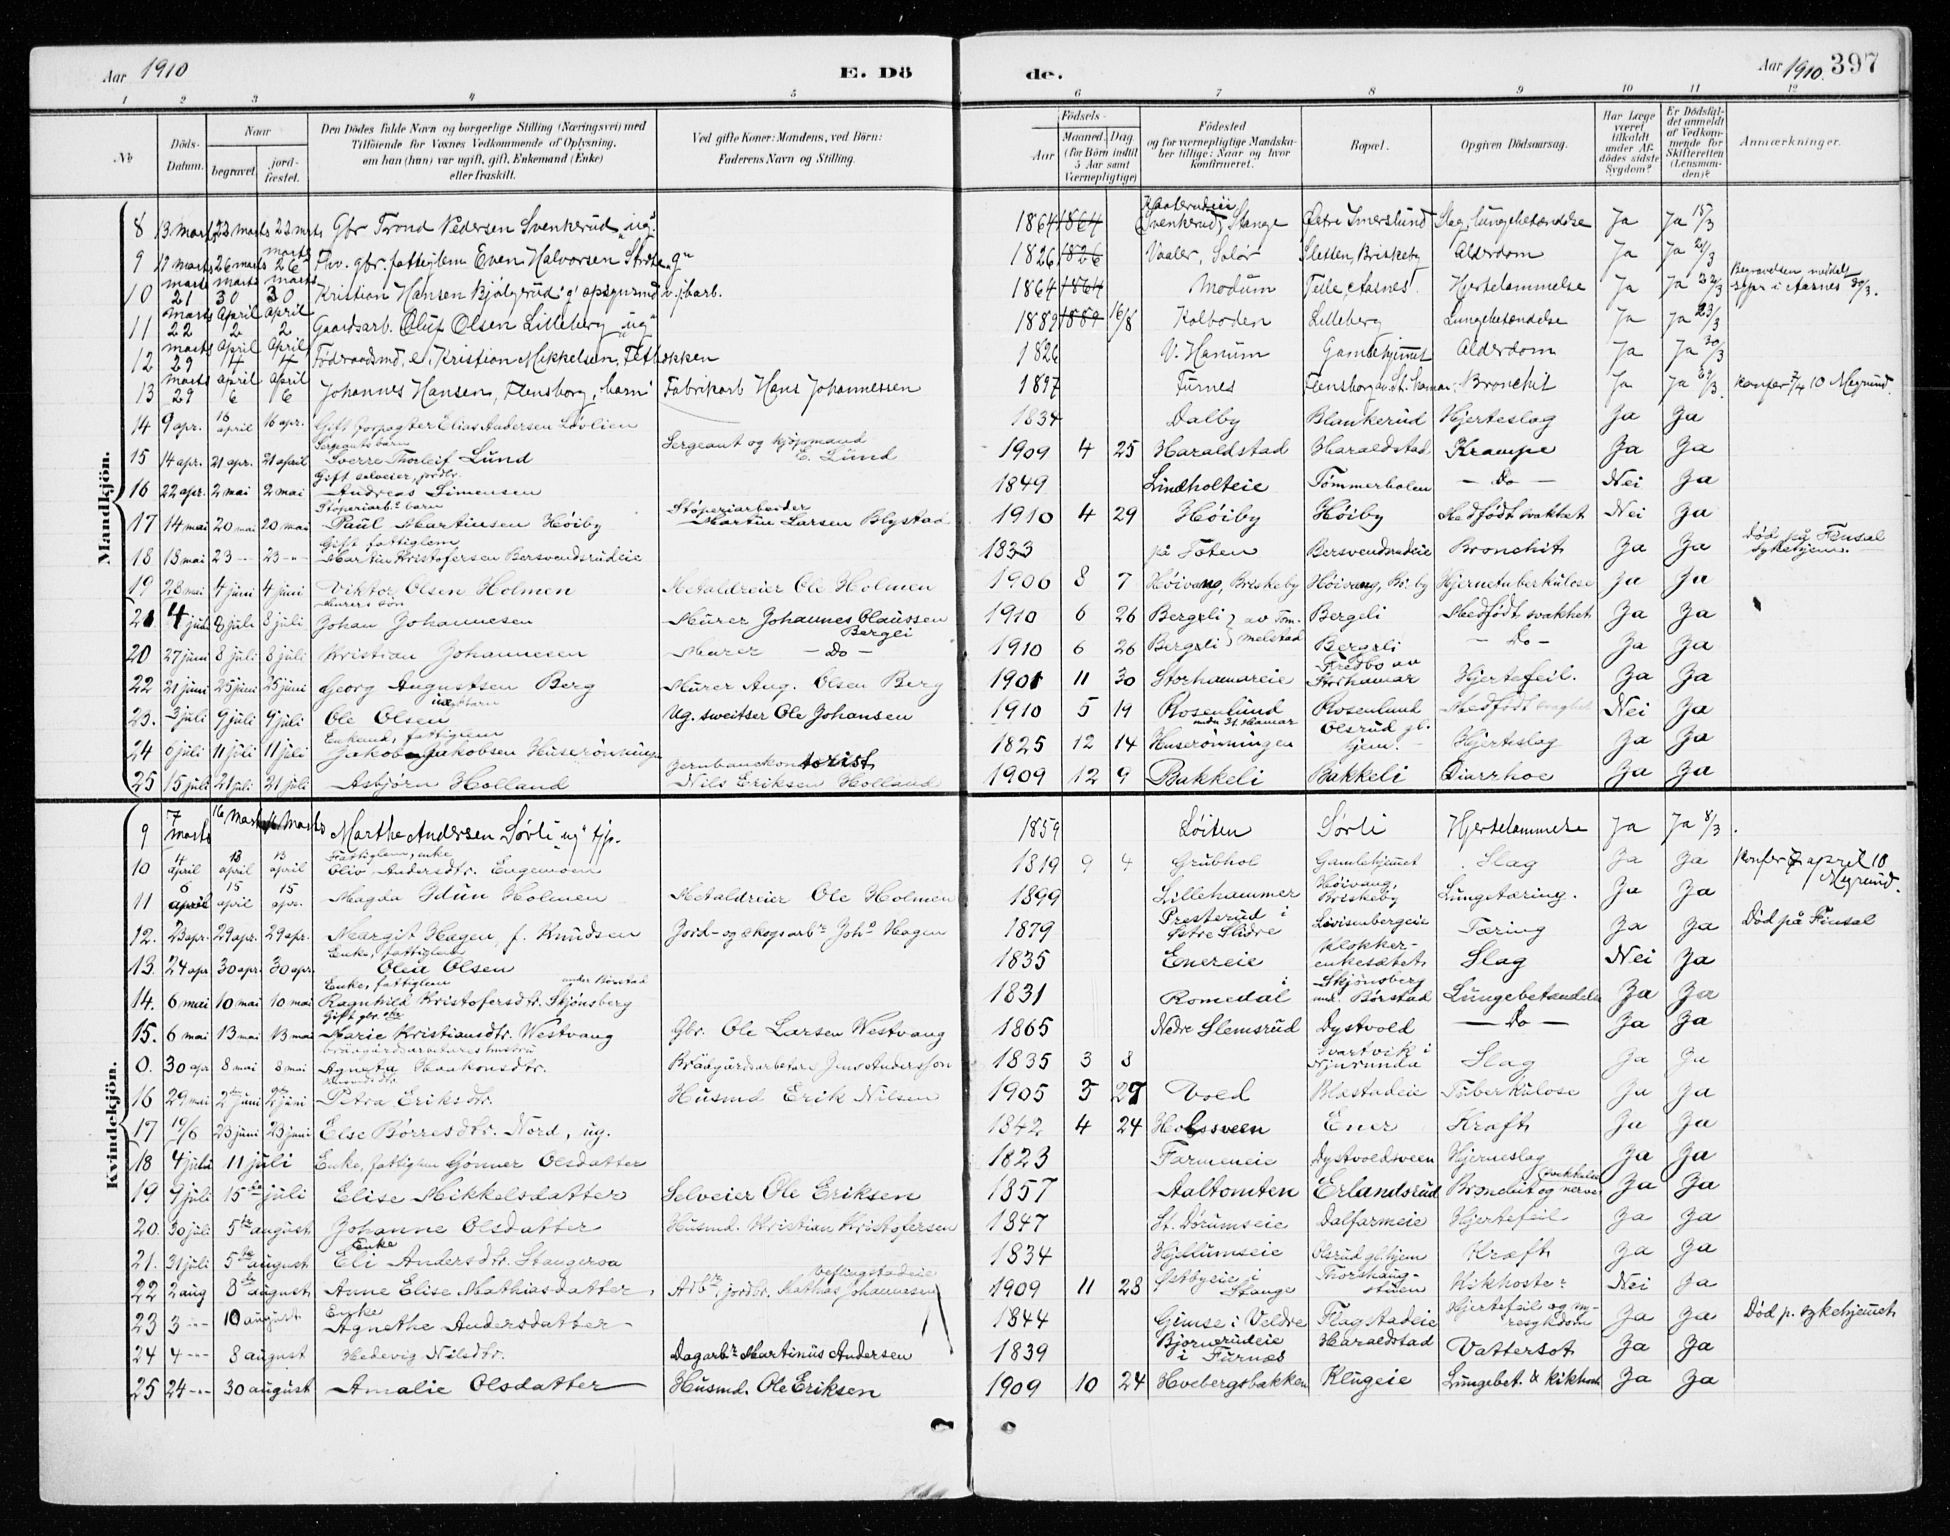 Aar 1910 E. Dö de. Aar 1910. 397
1 2 3 4 5 6 7 8 9 10 11 12
No
Döds-Datum.
Naar
begravet. jord-fæstet.
Den Dödes fulde Navn og borgerlige Stilling (Næringsvei) med Tilföiende for Voxnes Vedkommende af Oplysning, om han (hun) var ugift, gift, Enkemand (Enke) eller fraskilt.
Ved gifte Koner: Mandens, ved Börn: Faderens Navn og Stilling.
Födsels-
Aar Maaned. Dag
(for Börn indtil 5 Aar samt Værnepligtige)
Födested og for værnepligtige Mandska-ber tillige: Naar og hvor konfirmeret.
Bopæl.
Opgiven Dödsaarsag.
Har Læge været tilkaldt under Af-dödes sidste Sygdom?
Er Dödsfal-det anmeldt af Vedkom-mende for Skifteretten (Lensman-den)?
Anmærkninger.
Mandkjön.
8 13 marts 22 marts 22 marts Gbr Trond Pedersen Svenkerud "ug" 1864 Svenkerud, Stange Östre Imerslund Slag, lungebetændelse Ja Ja 15/3
9 19 marts 26 marts 26 marts Fhv. gbr. fattiglem Even Halvorsen "g" 1826 Vaaler, Solör Sletten, Briskeby Alderdom Ja Ja 21/3
10 21 marts 30 marts 30 marts Kristian Hansen Bjölgerud "g" 1864 Modum Aasnes Hjertelammelse Ja Ja 22/3 Begravelsen meddelt sgpr i Aasnes 30/3.
11 22 marts 2 april 2 april Gaardsarb. Oluf Olsen Lilleberg "ug" 1889 16/8 Kolboden Lilleberg Lungebetændelse Ja Ja 23/3
12 29 marts 4 april 4 april Föderaadsmd, e. Kristian Mikkelsen, 1826 V. Hanum Gamlehjemmet Alderdom Ja Ja 30/3
13 29 marts 6 april 6 april Johannes Hansen, Flensborg, barn Fabrikarb Hans Johannessen 1897 Furnes Flensborg Bronchit Ja Ja 29/3. Konfer 7/4 10 Megrund.
14 9 apr. 16 april 16 apr. Gift forpagter Elias Andersen Løvlien 1834 Dalby Blankerud Hjerteslag Ja Ja
15 14 apr. 21 apr. 21 april Sergeants barn Sverre Thorleif Lund Sergeant og kjøpmand E. Lund 1909 4 25 Haraldstad Haraldstad Krampe Ja Ja
16 22 apr. 2 mai 2 mai Gift selveier, jordbr. Andreas Simensen 1849 Lindholteie Tømmerholen — Do — Nei Ja
17 14 mai 20 mai 20 mai Støperiarbs. barn Paul Martinsen Høiby Støperiarbeider Martin Larsen Blystad 1910 4 29 Høiby Høiby Medfødt svakhet Nei Ja
18 18 mai 23 -"- 23 -"- Gift fattiglem Martin Kristofersen Bersvendsrudeie 1833 på Toten Bersvendsrudeie Bronchit Ja Ja Død på Finsal sykehjem.
19 28 mai 4 juni 4 juni Viktor Olsen Holmen Metaldreier Ole Holmen 1906 8 7 Høivang, Briskeby Høivang, Br. by Hjernetuberkulose Ja Ja
21 4 juli 8 juli 8 juli Murers søn Johan Johannesen Murer Johannes Claussen Bergli 1910 6 26 Bergli av Tommelstad Bergeli Medfødt svakhet Ja Ja
20 27 juni 8 juli 8 juli Kristian Johannesen Murer — Do — 1910 6 26 Bergeli Bergeli — Do — Ja Ja
22 21 juni 25 juni 25 juni Georg Augustsen Berg Murer Aug. Olsen Berg 1901 11 30 Storhamareie Fredbo av Storhamar Hjertefeil. Ja Ja
23. 3 juli 9 juli 9 juli Ole Olsen Ug. sveitser Ole Johansen 1910 5 19 Rosenlund under St. Hamar Rosenlund Medfødt svaghet Nei Ja
24 6 juli 11 juli 11 juli Enkemd, fattiglem Jakob Jakobsen Huserønningen 1825 12 14 Huserønningen Olsrud gl. hjem. Hjerteslag Ja Ja
25 15 juli 21 juli 21 juli Asbjørn Holland Jernbanekontorist Nils Eriksen Holland 1909 12 9 Bakkeli Bakkeli Diarrhoe Ja Ja
Kvindekjön.
9 7 marts 16 marts 16 marts Marthe Andersen Sørli "ug" tjp. 1859 Løiten Sørli Hjertelammelse Ja Ja 8/3.
10 4 april 13 april 13 april Fattiglem, enke Oliv Andersdtr. Engemoen 1819 9 4 Grubhol Gamlehjemet Slag Ja Ja Konfer 7 april 10 Megrund.
11 6 april 15 april 15 apr. Magda Idun Holmen Metaldreier Ole Holmen 1899 Lillehammer Høivang, Briskeby Lungetæring. Ja Ja
12. 23 apr. 29 apr. 29 apr. Margit Hagen, f. Knudsen Jord- og skogsarbr Johs Hagen 1879 Presterud i Østre Slidre Lovisenbergeie Tæring Ja Ja Død på Finsal
13. 24 apr 30 apr. 30 apr. Enke, fattiglem Olea Olsen 1835 Enereie Klokkerenkesætet Slag Nei Ja
14. 6 mai 10 mai 10 mai Enke, fattiglem Ragnhild Kristofersdtr. Skjønsberg under Børstad 1831 i Romedal Skjønsberg und. Børstad Lungebetændelse Ja Ja
15. 6 mai 13 mai 13 mai Gift gbr. Marie Kristiansdtr. Westvang Gbr. Ole Larsen Westvang 1865 Nedre Slemsrud Dystvold — Do — Ja Ja
0. 30 apr 8 mai 8 mai Brädgårdsarbetares hustru Agneta Haakonsdtr. Brädgårdsarbetare Jens Andersson 1835 3 8 Svartvik i Njurunda Slag Ja Ja
16 29 mai 2 juni 2 juni Petra Eriksdtr. Husmd Erik Nilsen 1905 5 27 Vold Blastadeie Tuberkulose Ja Ja
17 19/6 23 juni 23 juni Else Børresdtr. Nord, ug. 1842 4 24 Holssveen Ener Kræft Ja Ja
18 4 juli 11 juli Enke, fattiglem Gønner Olsdatter 1823 Farmeneie Dystvoldsveen Hjerneslag Ja Ja
19 9 juli 15de juli Elise Mikkelsdatter Selveier Ole Eriksen 1857 Aaltomten Erlandsrud Bronchit og nervesvakhet Ja Ja
20. 30 juli 5te august. Johanne Olsdatter Husmd. Kristian Kristofersen 1847 St. Dørumseie Dalfarmeie Hjertefeil Ja Ja
21. 31 juli 5te august Enke Eli Andersdtr. Stangeroa 1834 Hjellumseie Olsrud gl. hjem Kræft Ja Ja
22 2 aug 8de august. Anne Elise Mathiasdatter Arbr, jordbr. Mathias Johannesen Veflingstadeie 1909 11 28 Østbyeie i Stange Thorshaugstuen Kikhoste Nei Ja
23 3 -"- 10 august. Enke Agnethe Andersdatter 1844 Gimse i Veldre Flagstadeie Hjertefeil og nyresykdom Ja Ja Død p. sykehjemet
24 4 -"- 8 august Hedevig Nilsdtr. Dagarbr Martinus Andersen 1839 Bjørnerudeie i Furnæs Haraldstad Vattersot Ja Ja
25 24 -"- 30 august Amalie Olsdatter Husmd. Ole Eriksen 1909 10 24 Hvebergsbakken Klugeie Lungebet. & kikhoste Ja Ja